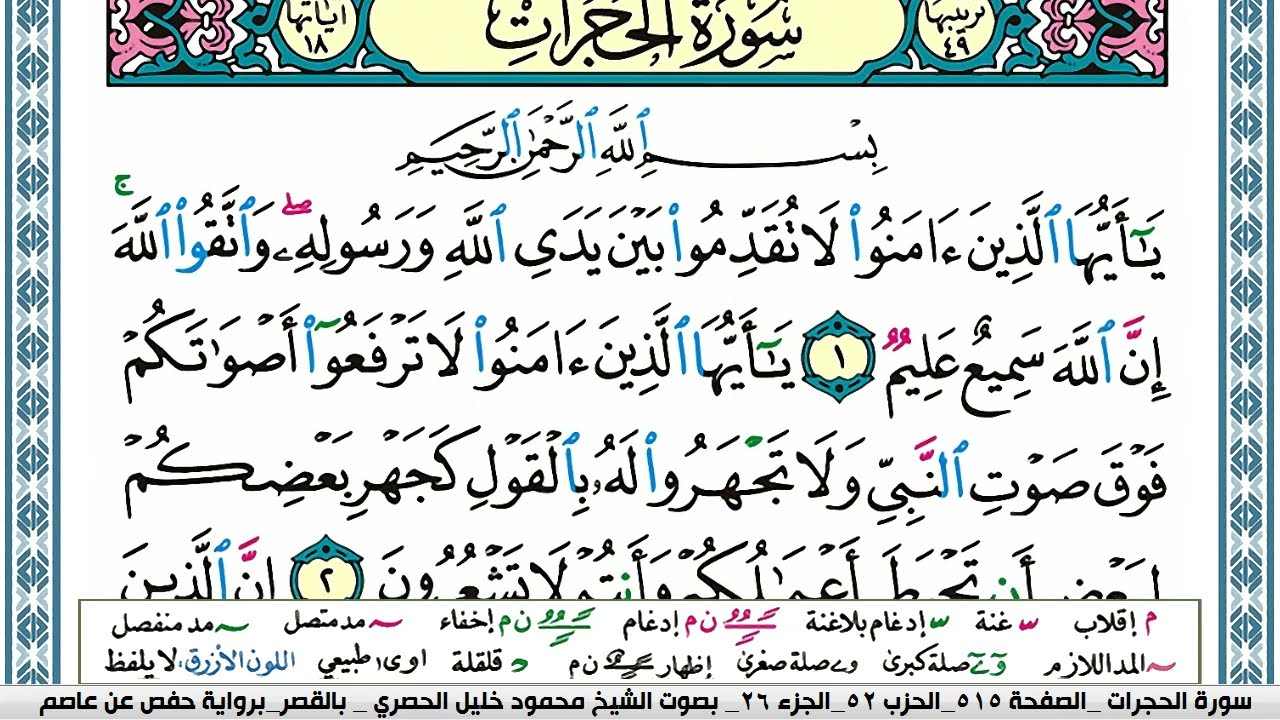 ترتيبها ٤٩ سُورَةُ الحُجُرَاتِ آياتها ١٨
بِسْمِ ٱللَّهِ ٱلرَّحْمَٰنِ ٱلرَّحِيمِ
يَٰٓأَيُّهَا ٱلَّذِينَ ءَامَنُوا۟ لَا تُقَدِّمُوا۟ بَيْنَ يَدَىِ ٱللَّهِ وَرَسُولِهِۦ ۖ وَٱتَّقُوا۟ ٱللَّهَ ۚ
إِنَّ ٱللَّهَ سَمِيعٌ عَلِيمٌ ١ يَٰٓأَيُّهَا ٱلَّذِينَ ءَامَنُوا۟ لَا تَرْفَعُوٓا۟ أَصْوَٰتَكُمْ
فَوْقَ صَوْتِ ٱلنَّبِىِّ وَلَا تَجْهَرُوا۟ لَهُۥ بِٱلْقَوْلِ كَجَهْرِ بَعْضِكُمْ
لِبَعْضٍ أَن تَحْبَطَ أَعْمَٰلُكُمْ وَأَنتُمْ لَا تَشْعُرُونَ ٢ إِنَّ ٱلَّذِينَ
م إقلاب س غنة س إدغام بلاغنة ن م إدغام ن م إخفاء ~ مد متصل ~ مد منفصل
~ المد اللازم و ے صلة كبرى و ے صلة صغرى إظهار ن م د قلقلة اوى طبيعي اللون الأزرق: لا يلفظ
سورة الحجرات _الصفحة ٥١٥_الحزب ٥٢_الجزء ٢٦_ بصوت الشيخ محمود خليل الحصري _ بالقصر_برواية حفص عن عاصم